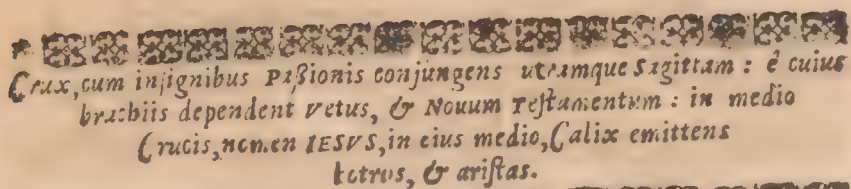 Crux, cum insignibus Paßionis conjungens utramque Sagittam : è cuius
brachiis dependent Vetus, & Nouum Testamentum : in medio
Crucis, nomen IESVS, in eius medio, Calix emittens
botros, & aristas.